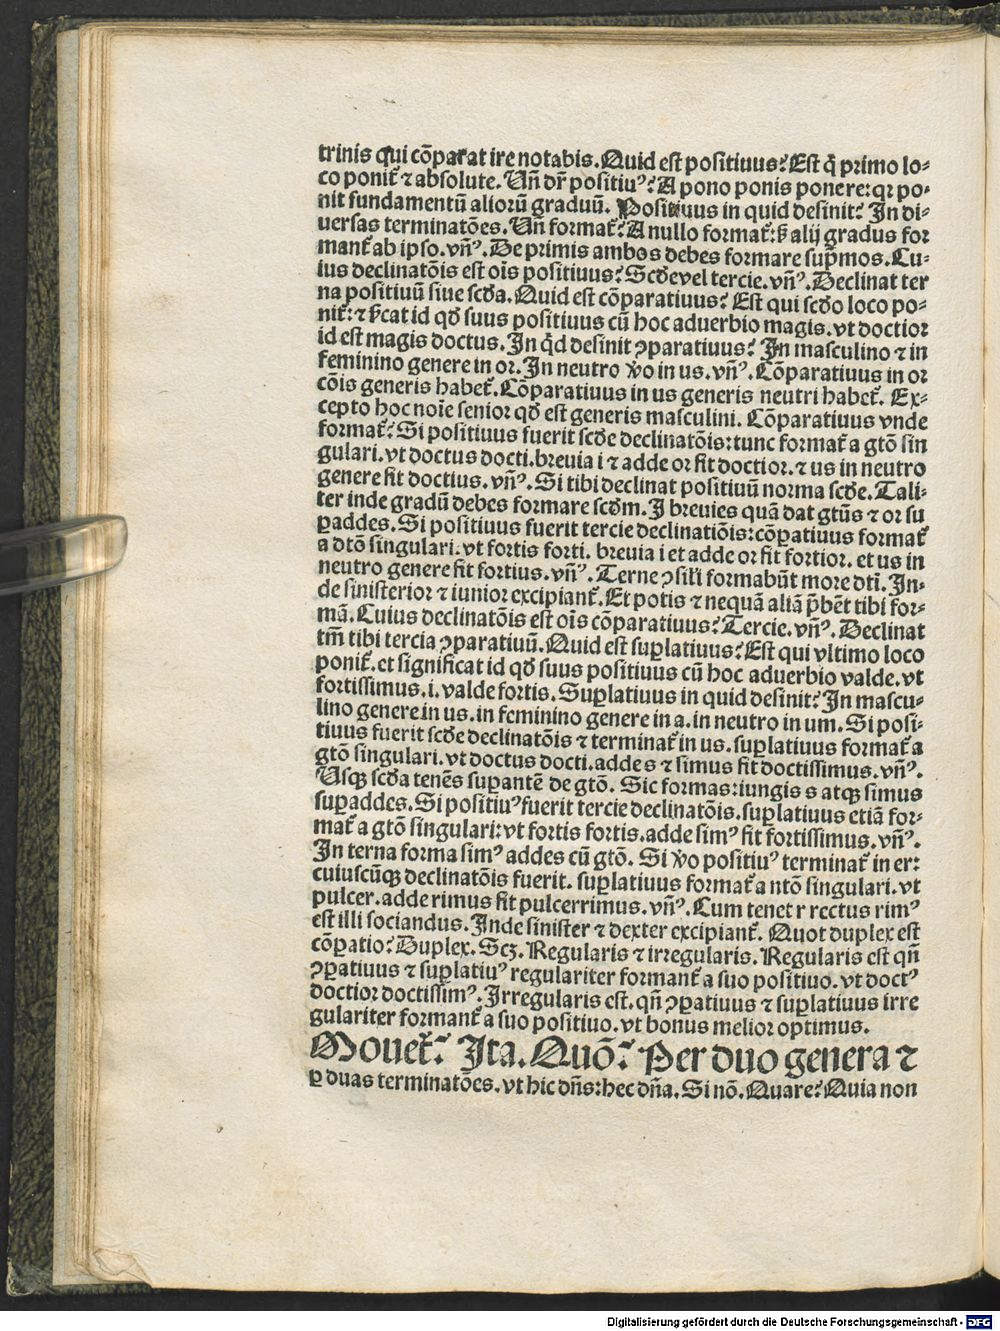 trinis qui cōparat ire notabis. Quid est positiuus? Est q̄ primo lo⸗
co ponit̄ ⁊ absolute. Vn̄ dr̄ positiuꝰ? A pono ponis ponere: qꝛ po⸗
nit fundamentū alioꝛū graduū. Positiuus in quid desinit? In di⸗
uersas terminatōes. Vn̄ format̄? A nullo format̄: sꝫ alij gradus foꝛ
mant̄ ab ipso. vn̄ꝰ. De primis ambos debes formare sup̄mos. Cu⸗
ius declinatōis est oīs positiuus? Scd̄e vel tercie. vn̄ꝰ. Declinat ter
na positiuū siue scd̄a. Quid est cōparatiuus? Est qui scd̄o loco po⸗
nit̄: ⁊ sīcat id qd̄ suus positiuus cū hoc aduerbio magis. vt doctioꝛ
id est magis doctus. In qd̄ desinit ꝯparatiuus? In masculino ⁊ in
feminino genere in oꝛ. In neutro v̄o in us. vn̄ꝰ. Cōparatiuus in oꝛ
cōis generis habet̄. Cōparatiuus in us generis neutri habet̄. Ex⸗
cepto hoc noīe senioꝛ qd̄ est generis masculini. Cōparatiuus vnde
format̄? Si positiuus fuerit scd̄e declinatōis: tunc format̄ a gtō sin
gulari. vt doctus docti. breuia i ⁊ adde oꝛ fit doctioꝛ. ⁊ us in neutro
genere fit doctius. vn̄ꝰ. Si tibi declinat positiuū norma scd̄e. Tali⸗
ter inde gradū debes formare scd̄m. I breuies quā dat gtūs ⁊ oꝛ su
ꝑaddes. Si positiuus fuerit tercie declinatiōis: cōꝑatiuus format̄
a dtō singulari. vt fortis forti. breuia i et adde oꝛ fit fortioꝛ. et us in
neutro genere fit fortius. vn̄ꝰ. Terne ꝯsil'i formabūt more dtī. In⸗
de sinisterioꝛ ⁊ iunioꝛ excipiant̄. Et potis ⁊ nequā aliā p̄bēt tibi foꝛ⸗
mā. Cuius declinatōis est oīs cōparatiuus? Tercie. vn̄ꝰ. Declinat
tm̄ tibi tercia ꝯparatiuū. Quid est suꝑlatiuus? Est qui vltimo loco
ponit̄. et significat id qd̄ suus positiuus cū hoc aduerbio valde. vt
fortissimus. i. valde fortis. Suꝑlatiuus in quid desinit? In mascu⸗
lino genere in us. in feminino genere in a. in neutro in um. Si posi⸗
tiuus fuerit scd̄e declinatōis ⁊ terminat̄ in us. suꝑlatiuus format̄ a
gtō singulari. vt doctus docti. adde s ⁊ simus fit doctissimus. vn̄ꝰ.
Usqꝫ scd̄a tenēs suꝑantē de gtō. Sic formas: iungis s atqꝫ simus
suꝑaddes. Si positiuꝰ fuerit tercie declinatōis. suꝑlatiuus etiā foꝛ⸗
mat̄ a gtō singulari: vt fortis fortis. adde simꝰ fit fortissimus. vn̄ꝰ.
In terna forma simꝰ addes cū gtō. Si v̄o positiuꝰ terminat̄ in er:
cuiuscūqꝫ declinatōis fuerit. suꝑlatiuus format̄ a ntō singulari. vt
pulcer. adde rimus fit pulcerrimus. vn̄ꝰ. Cum tenet r rectus rimꝰ
est illi sociandus. Inde sinister ⁊ dexter excipiant̄. Quot duplex est
cōꝑatio? Duplex. Scꝫ. Regularis ⁊ irregularis. Regularis est qn̄
ꝯꝑatiuus ⁊ suꝑlatiuꝰ regulariter formant̄ a suo positiuo. vt doctꝰ
doctioꝛ doctissimꝰ. Irregularis est. qn̄ ꝯꝑatiuus ⁊ suꝑlatiuus irre
gulariter formant̄ a suo positiuo. vt bonus melioꝛ optimus.
Mouet̄? Ita. Quō? Per duo genera ⁊
ꝑ duas terminatōes. vt hic dn̄s: hec dn̄a. Si nō. Quare? Quia non
Digitalisierung gefördert durch die Deutsche Forschungsgemeinschaft - DFG